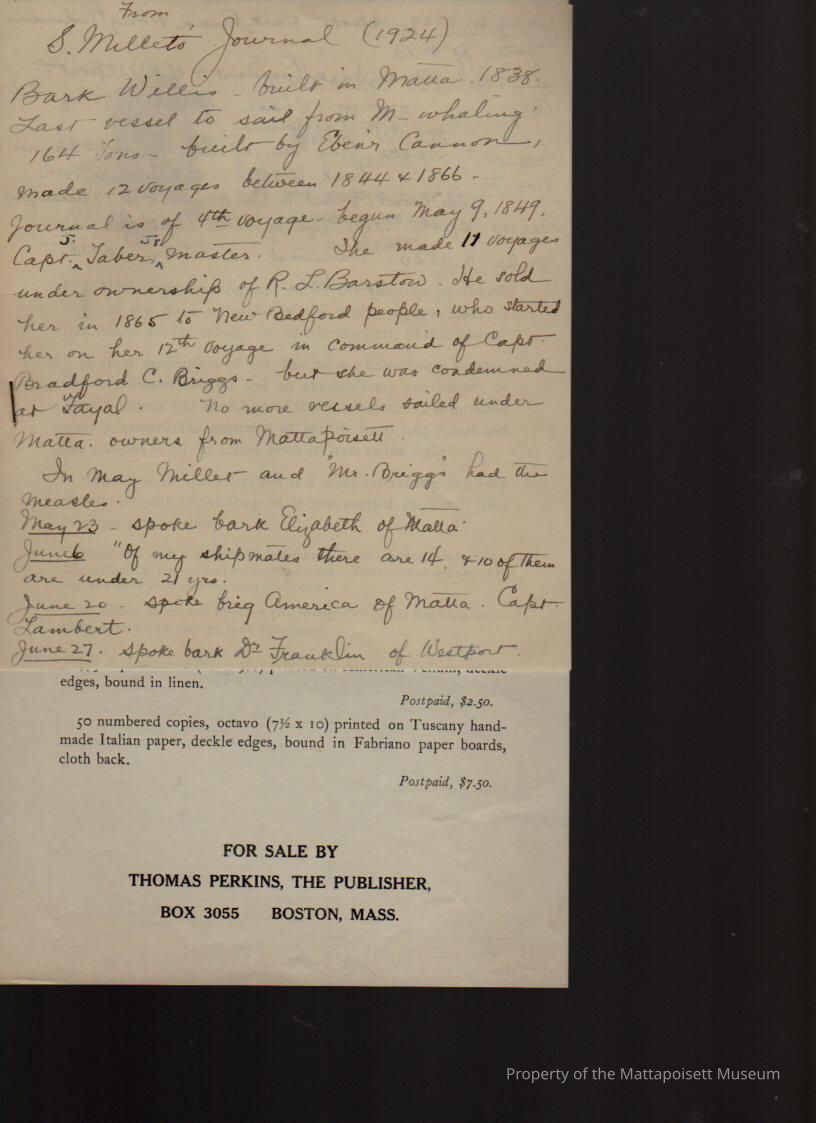 From
S. Millet's Journal (1924)
Bark Willis - built in Matta. 1838.
Last vessel to sail from M- whaling
164 Tons - built by Eben'r Cannon,
made 12 voyages between 1844 & 1866 -
Journal is of 4th voyage - begun May 9, 1849,
Capt. J. Taber, Jr. master. She made 11 voyages
under ownership of R. L. Barstow. He sold
her in 1865 to New Bedford people, who started
her on her 12th voyage in command of Capt.
Bradford C. Briggs - but she was condemned
at Fayal. No more vessels sailed under
Matta. owners from Mattapoisett.
In May Millet and "Mr. Briggs" had the
measles.
May 23 - spoke bark Elizabeth of Matta.
June 6 "Of my shipmates there are 14, & 10 of them
are under 21 yrs.
June 20 - spoke brig America of Matta. Capt.
Lambert.
June 27. spoke bark Dr Franklin of Westport.
edges, bound in linen.
Postpaid, $2.50.
50 numbered copies, octavo (7½ x 10) printed on Tuscany hand-
made Italian paper, deckle edges, bound in Fabriano paper boards,
cloth back.
Postpaid, $7.50.
FOR SALE BY
THOMAS PERKINS, THE PUBLISHER,
BOX 3055 BOSTON, MASS.
Property of the Mattapoisett Museum